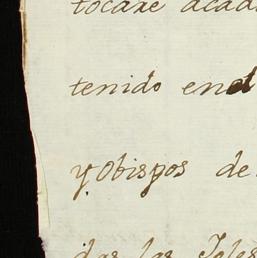 tocare acada
tenido enel
y Obispos de
das las Igles